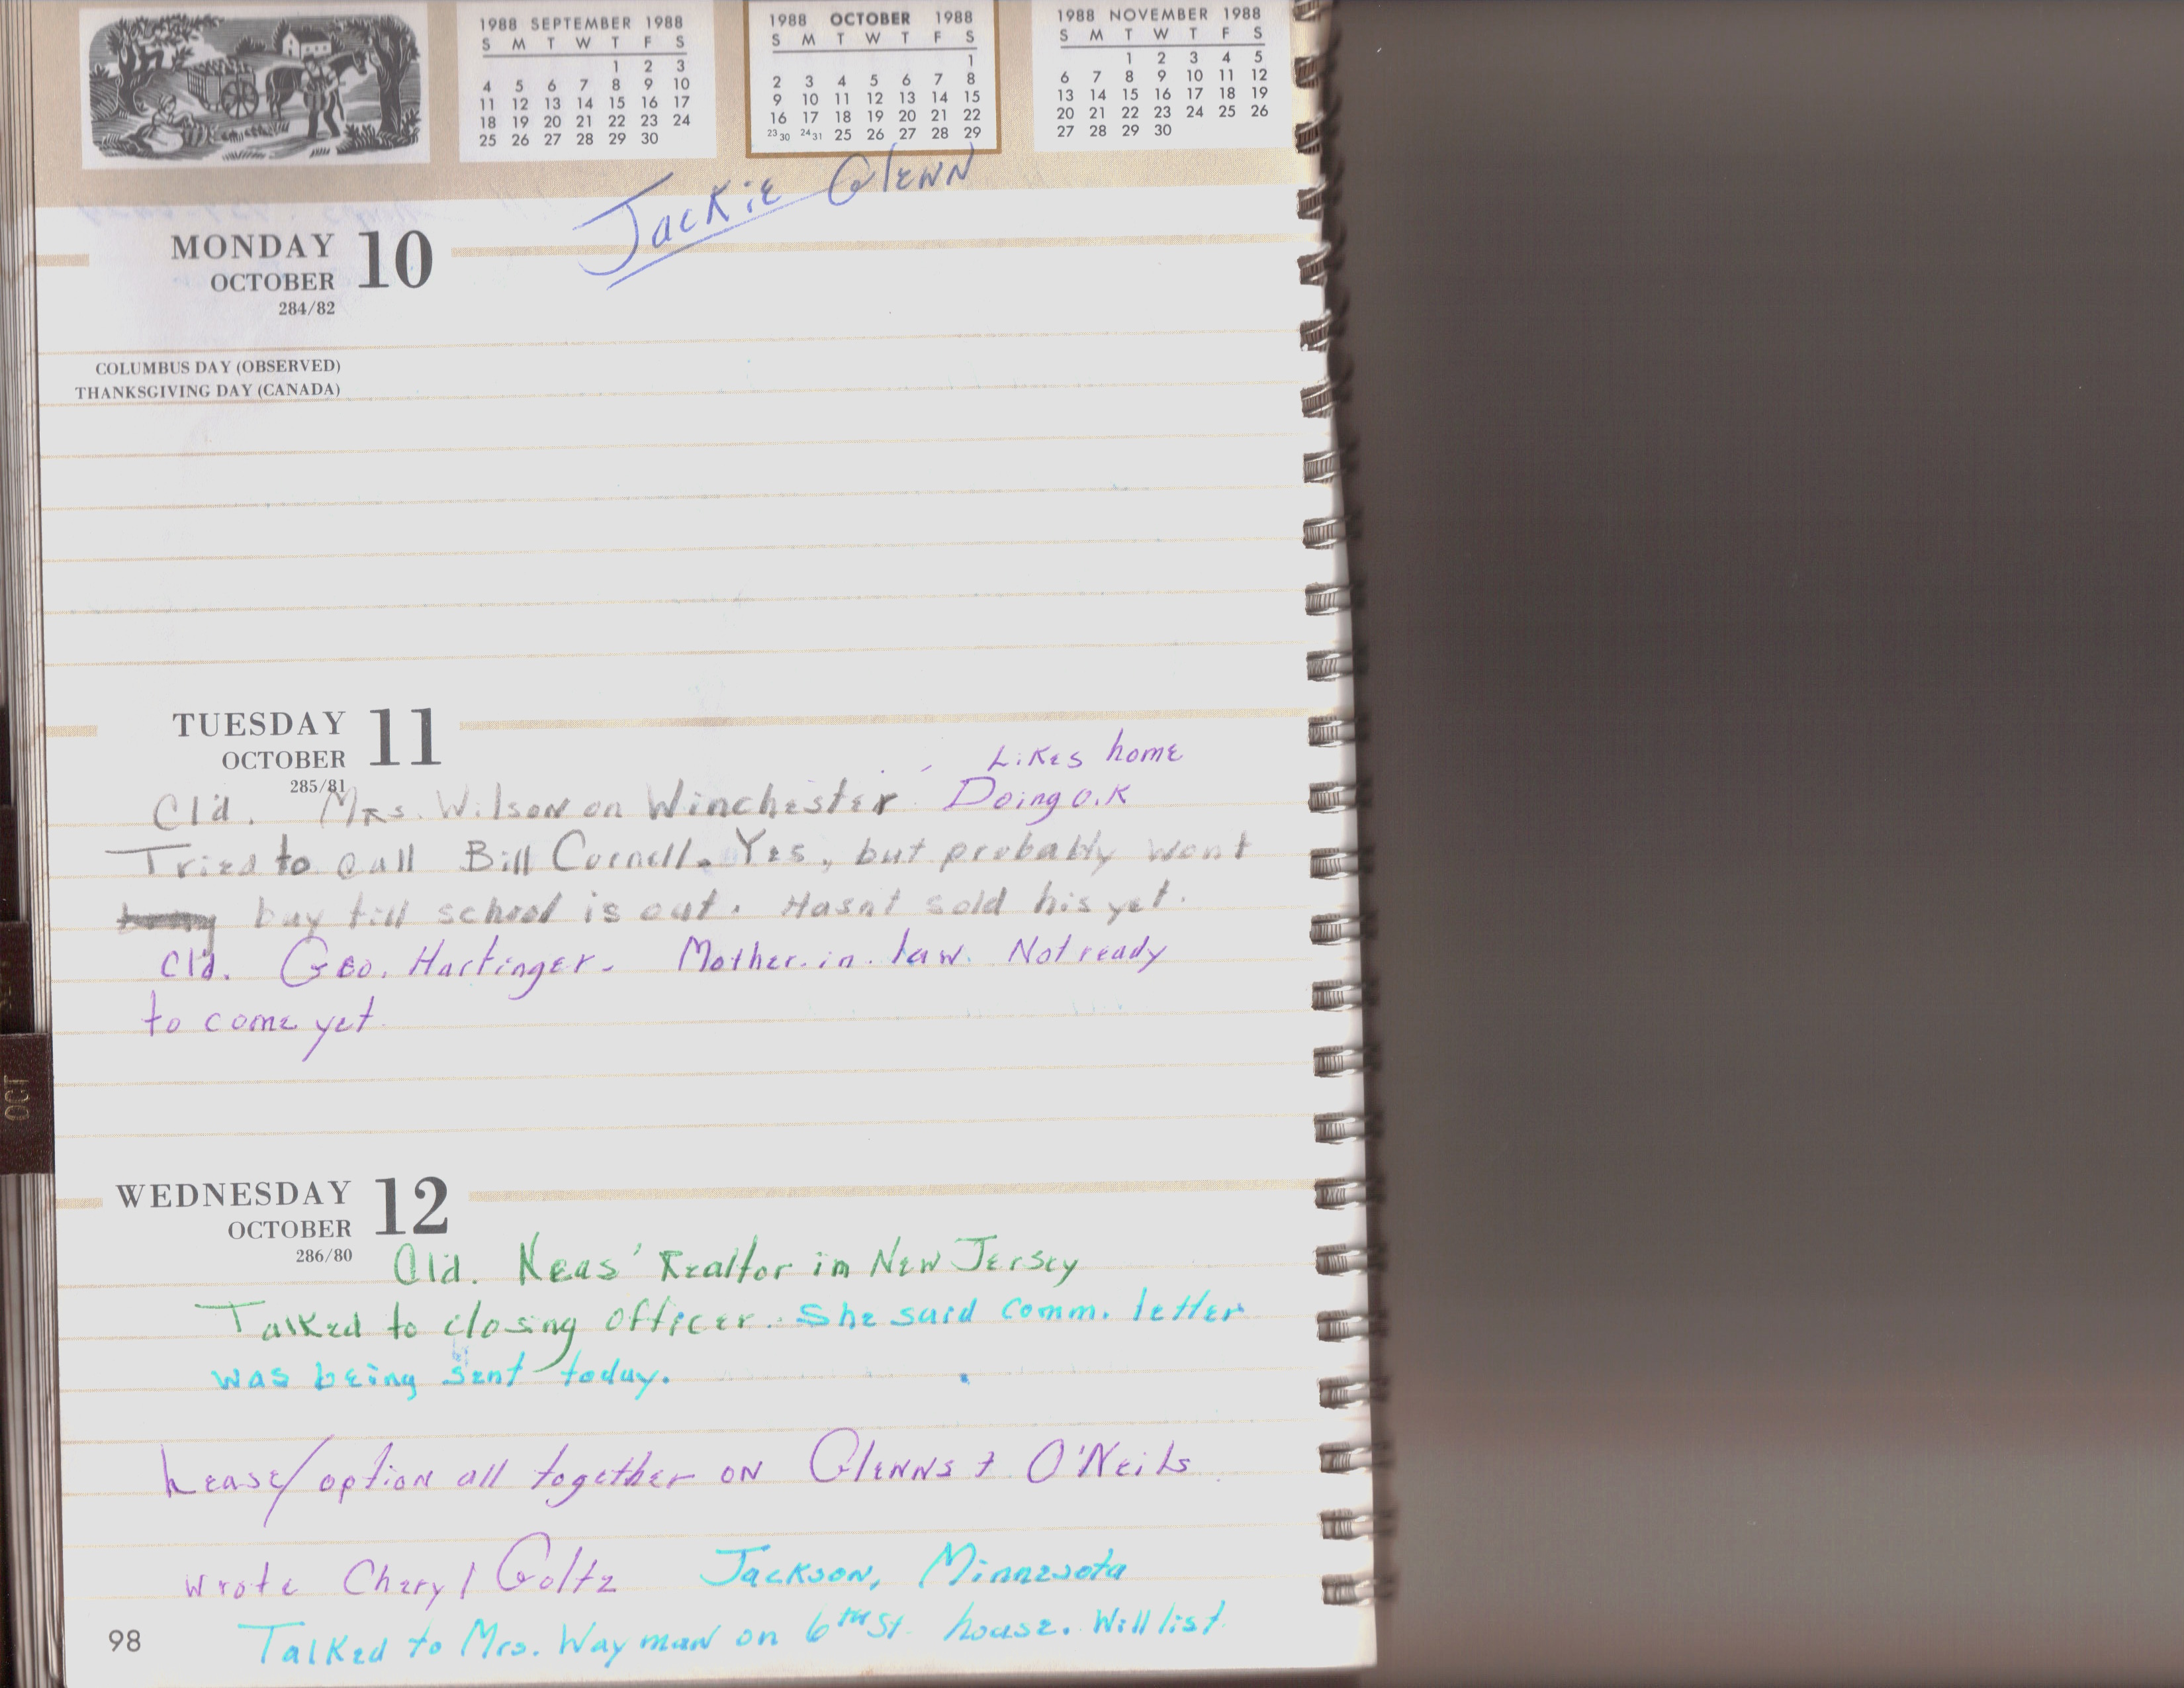 1988 SEPTEMBER 1988
S M T W T F S
1 2 3
4 5 6 7 8 9 10
11 12 13 14 15 16 17
18 19 20 21 22 23 24
25 26 27 28 29 30
1988 OCTOBER 1988
S M T W T F S
1
2 3 4 5 6 7 8
9 10 11 12 13 14 15
16 17 18 19 20 21 22
23 30 24 31 25 26 27 28 29
1988 NOVEMBER 1988
S M T W T F S
1 2 3 4 5
6 7 8 9 10 11 12
13 14 15 16 17 18 19
20 21 22 23 24 25 26
27 28 29 30
Jackie Glenn
MONDAY 10
OCTOBER
284/82
COLUMBUS DAY (OBSERVED)
THANKSGIVING DAY (CANADA)
TUESDAY 11
OCTOBER
285/81
Likes home
Cl'd. Mrs. Wilson on Winchester Doing O.K
Tried to call Bill Cornell. Yes, but probably wont
buy till school is out. Hasnt sold his yet.
Cl'd. Geo. Hartinger. Mother.in.law. Not ready
to come yet
OCT
WEDNESDAY 12
OCTOBER
286/80
Cld. Keas' Realtor in New Jersey
Talked to closing officer. She said comm. letter
was being sent today.
Lease/option all together on Glenns + O'Neils
wrote Cheryl Goltz Jackson, Minnesota
98
Talked to Mrs. Wayman on 6th St. house. Will list.